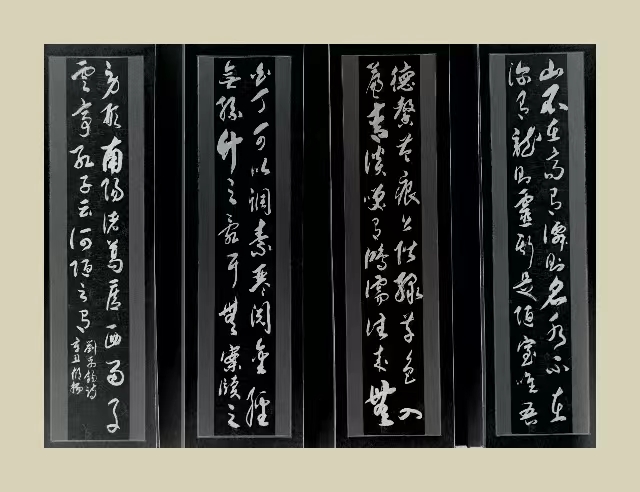 山不在高有僊則名水不在
深有龍則靈斯是陋室唯吾
德馨苔痕上階綠草色入
簾青談笑有鴻儒往來無
白丁可以調素琴閱金經
無絲竹之亂耳無案牘之
勞形南陽諸葛廬西蜀子
雲亭孔子云何陋之有
劉禹錫詩
辛丑